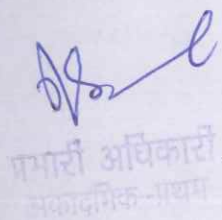 प्रभारी अधिकारी
एकादमिक-प्रथम